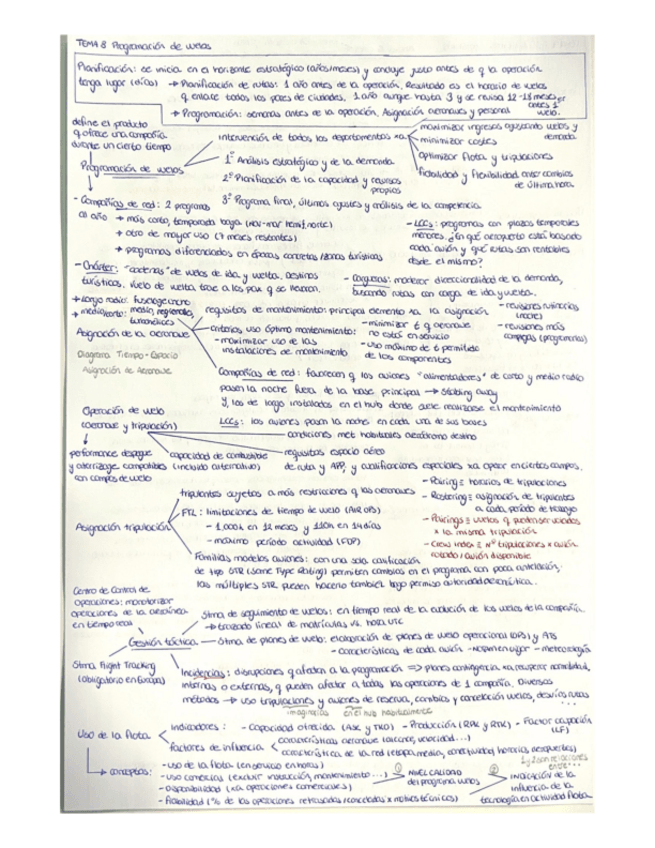 TEMA 8 Programación de vuelos
Planificación: se inicia en el horizonte estratégico (años/meses) y concluye justo antes de q la operación
tenga lugar (días) → Planificación de rutas: 1 año antes de la operación. Resultado es el horario de vuelos
q enlace todos los pares de ciudades, 1 año aunque hasta 3 y se revisa 12-18 meses
antes 1er vuelo.
→ Programación: semanas antes de la operación. Asignación aeronaves y personal
define el producto
q ofrece una compañía
durante un cierto tiempo
Programación de vuelos
intervención de todos los departamentos xa
maximizar ingresos ajustando vuelos y
demanda
minimizar costes
optimizar flota y tripulaciones
fiabilidad y flexibilidad ante cambios
de última hora
1º Análisis estratégico y de la demanda
2º Planificación de la capacidad y recursos
propios
3º Programa final, últimos ajustes y análisis de la competencia
- Compañías de red: 2 programas
al año → más corto, temporada baja (nov-mar hemif. norte)
→ otro de mayor uso (7 meses restantes)
→ programas diferenciados en épocas concretas zonas turísticas
- LCCs: programas con plazos temporales
menores. ¿En qué aeropuerto está basado
cada avión y qué rutas son rentables
desde el mismo?
- Chárter: "cadenas" de vuelos de ida y vuelta. Destinos
turísticos. Vuelo de vuelta trae a los pax q se llevaron.
- Cargueras: moderar direccionalidad de la demanda,
buscando rutas con carga de ida y vuelta.
→ largo radio: fuselaje ancho
→ medio/corto: medio, regionales,
turbohélices
Asignación de la aeronave
Diagrama Tiempo - Espacio
Asignación de Aeronave
requisitos de mantenimiento: principal elemento xa la asignación
- revisiones rutinarias
(noche)
- revisiones más
complejas (programarlas)
criterios uso óptimo mantenimiento:
- maximizar uso de las
instalaciones de mantenimiento
- minimizar t q aeronave
no está en servicio
- uso máximo de t permitido
de los componentes
Compañías de red: favorecen q los aviones "alimentadores" de corto y medio radio
pasen la noche fuera de la base principal →
y los de largo instalados en el hub donde suele realizarse el mantenimiento
LCCs: los aviones pasan la noche en cada una de sus bases
Operación de vuelo
(aeronave y tripulación)
condiciones met. habituales aeródromo destino
performance despegue
y aterrizaje compatibles
con campos de vuelo
capacidad de combustible
(incluido alternativo)
requisitos espacio aéreo
de ruta y APP, y cualificaciones especiales xa operar en ciertos campos.
Asignación tripulación
tripulantes sujetos a más restricciones q las aeronaves
FTL: limitaciones de tiempo de vuelo (AIR OPS)
- 1.000h en 12 meses y 110h en 14 días
- máximo período actividad (FDP)
- Pairing ≡ horarios de tripulaciones
- Rostering ≡ asignación de tripulantes
a cada período de trabajo
- Pairings ≡ vuelos q pueden ser volados
x la misma tripulación
- Crew index ≡ nº tripulaciones x avión
volado / avión disponible
Familias modelos aviones: con una sola calificación
de tipo STR (Same Type Rating) permiten cambios en el programa con poca antelación.
las múltiples STR pueden hacerlo también bajo permiso autoridad aeronáutica.
Centro de Control de
Operaciones: monitorizar
operaciones de la aerolínea
en tiempo real
Gestión táctica
Stma Flight Tracking
(obligatorio en Europa)
Stma de seguimiento de vuelos: en tiempo real de la evolución de los vuelos de la compañía.
→ trazado lineal de matrículas vs. hora UTC
Stma de planes de vuelo: elaboración de planes de vuelo operacional (OPS) y ATS
- características de cada avión - NOTAM en vigor - meteorología
Incidencias: disrupciones q afectan a la programación ⇒ planes contingencia xa recuperar normalidad,
internas o externas, q pueden afectar a todas las operaciones de 1 compañía. Diversos
métodos → uso tripulaciones y aviones de reserva, cambios y cancelación vuelos, desvíos rutas ...
imaginarias en el hub habitualmente
Uso de la flota
Indicadores: - Capacidad ofrecida (ASK y TKO) - Producción (RPK y RTK) - Factor ocupación
(LF)
Factores de influencia
características aeronave (alcance, velocidad...)
características de la red (etapa media, conectividad, horarios, aeropuertos)
1 y 2 son relaciones
entre...
conceptos:
- uso de la flota (en servicio en horas)
- uso comercial (excluir instrucción, mantenimiento...)
- Disponibilidad (xa operaciones comerciales)
- Fiabilidad (% de las operaciones retrasadas/canceladas x motivos técnicos)
① NIVEL CALIDAD
del programa vuelos
② INDICACIÓN DE LA
influencia de la
tecnología en actividad flota